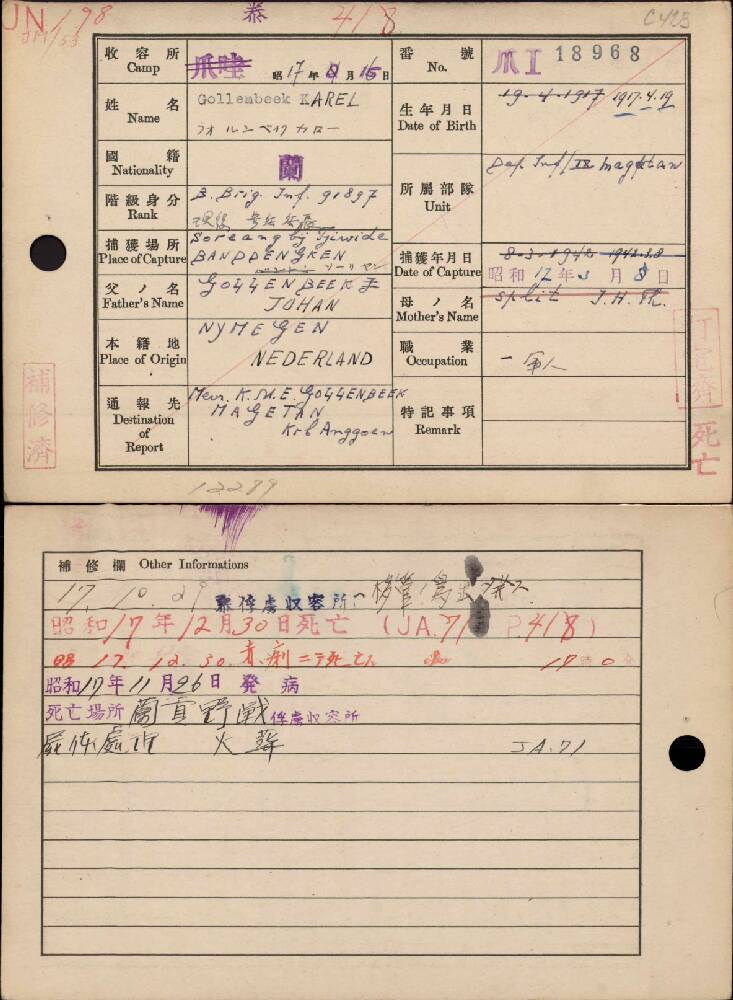 JN 198
JM/53
泰
418
収容所
Camp
爪哇
昭17年9月15日
番號
No.
爪I 18968
姓名
Name
Gollenbeek KAREL
生年月日
Date of Birth
19-4-1917 1917.4.19
國籍
Nationality
蘭
階級身分
Rank
B. Brig. Inf. 91897
所屬部隊
Unit
捕獲場所
Place of Capture
Soreang bij Tjiwide
BANDOENGKEN
捕獲年月日
Date of Capture
8-3-1942 1942.3.8
昭和17年3月8日
父ノ名
Father's Name
GOLLENBEEK
JOHAN
母ノ名
Mother's Name
Split
本籍地
Place of Origin
NYMEGEN
NEDERLAND
職業
Occupation
一軍人
通報先
Destination
of
Report
Mevr. K.M.E. GOLLENBEEK
MAGETAN
特記事項
Remark
補修済
死亡
12289
補修欄 Other Informations
17. 10. 29
泰俘虜収容所ヘ移管ノ為
昭和17年12月30日死亡 (JA.71 P.418)
17. 12. 30.
昭和17年11月26日発病
死亡場所
野戦俘虜収容所
屍体處理 火葬 JA.71